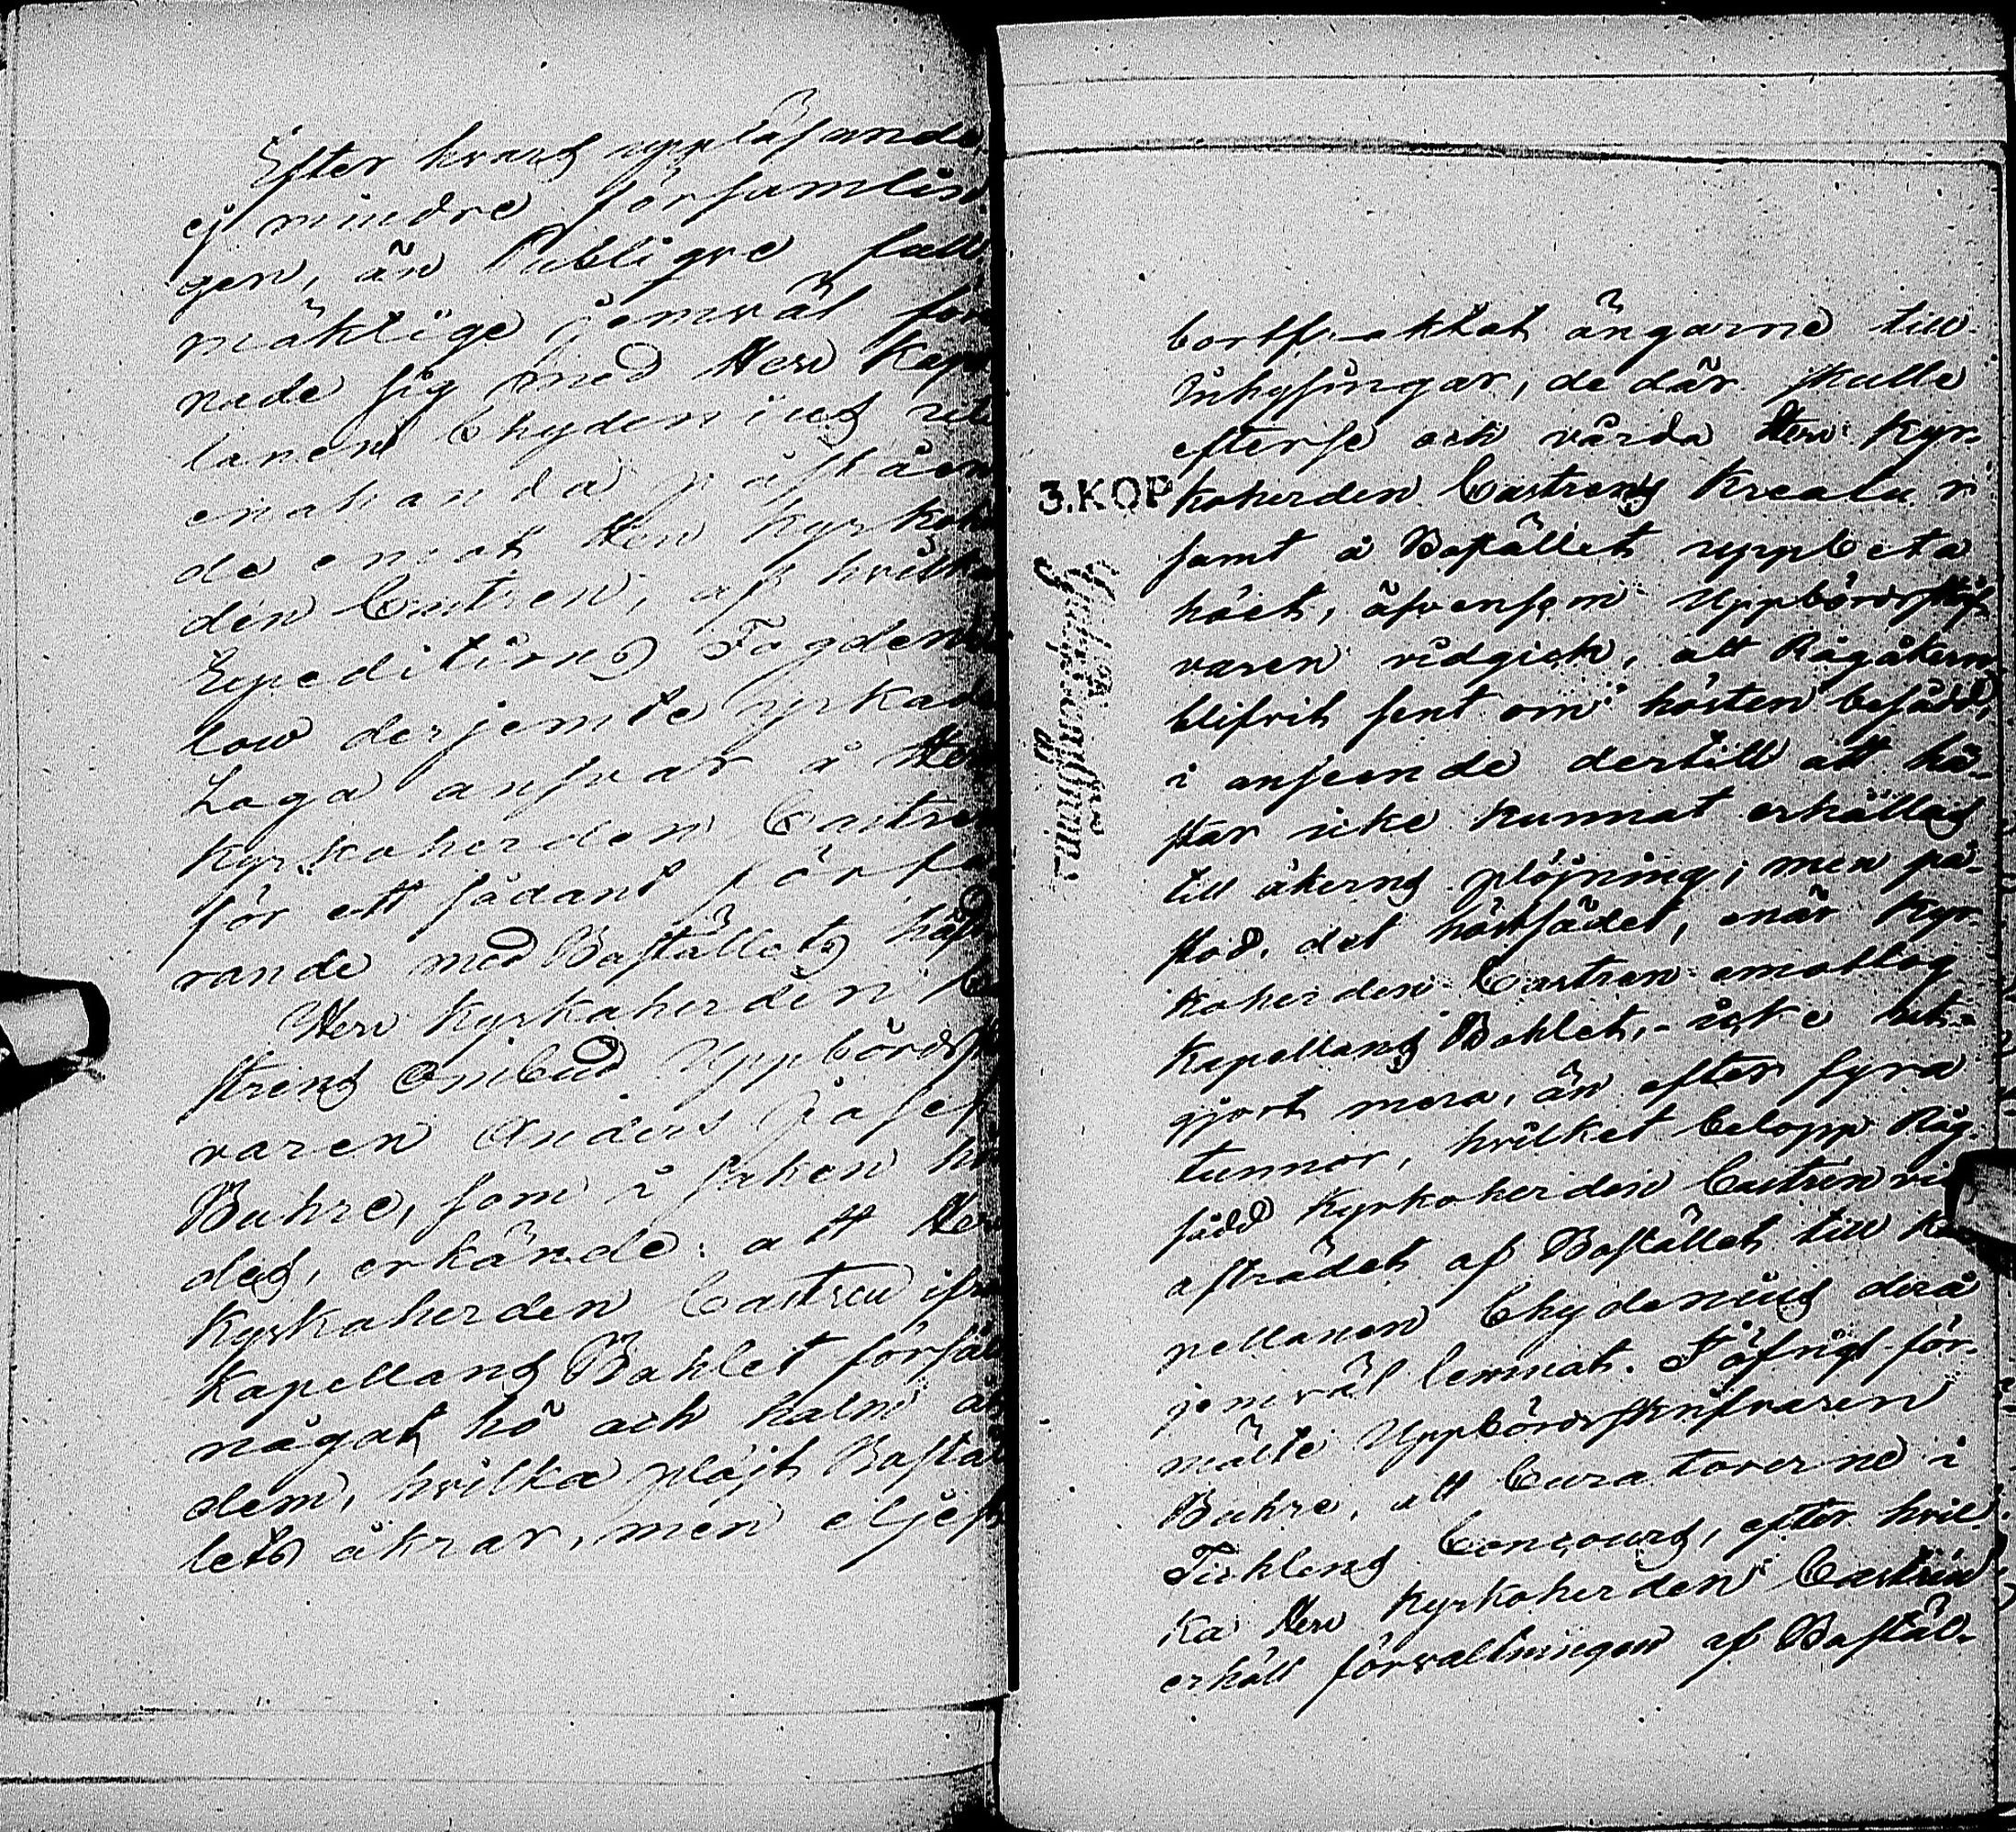 Efter hvars uppläsande
ej mindre församlin
gen, än Publique full
mäktige jemväl före
nade sig med Herr Kapel
lanen Chydenius ut
enahanda påståen
de emot Herr Kyrkoher
den Castren, af hvilken
Expeditions Fogden
low derjemte yrkade
Laga ansvar å Herr
Kyrkoherden Castren
för ett sådant förfa
rande med Boställets häfd
Herr Kyrkoherden Ca
strens Ombud Uppbördsskrif
varen Anders Josef
Buhre, som i saken hör
des, erkände: att Herr
Kyrkoherden Castren ifrån
Kapellans Bohlet försålt
något hö och halm åt
dem, hvilka plöjt Bostäl
lets åkrar, men eljest
bortfraktat ängarne till
Inhysingar, de där skulle
efterse och vårda Herr Kyr-
koherden Castrens Kreatur
3.KOP
samt å Bostället uppbeta
höet, äfvensom Uppbördsskrif
varen vidgick, att Rågåkern
blifvit sent om hösten besådd,
i anseende dertill att hä-
star icke kunnat erhållas
till åkerns plöjning; men på-
stod, det höstsädet, enär Kyr-
koherden Castren emottog
Kapellans Bohlet, icke ut-
gjort mera, än efter fyra
tunnor, hvilket belopp Råg-
sådd Kyrkoherden Castren vid
afträdet af Bostället till Ka
pellanen Chydenius derå
jemväl lemnat. I öfrigt för-
mälte Uppbördsskrifvaren
Buhre, att Curatorerne i
Tickléns Concours, efter hvil-
ka Herr Kyrkoherden Castrén
erhöll förvaltningen af Bostäl-